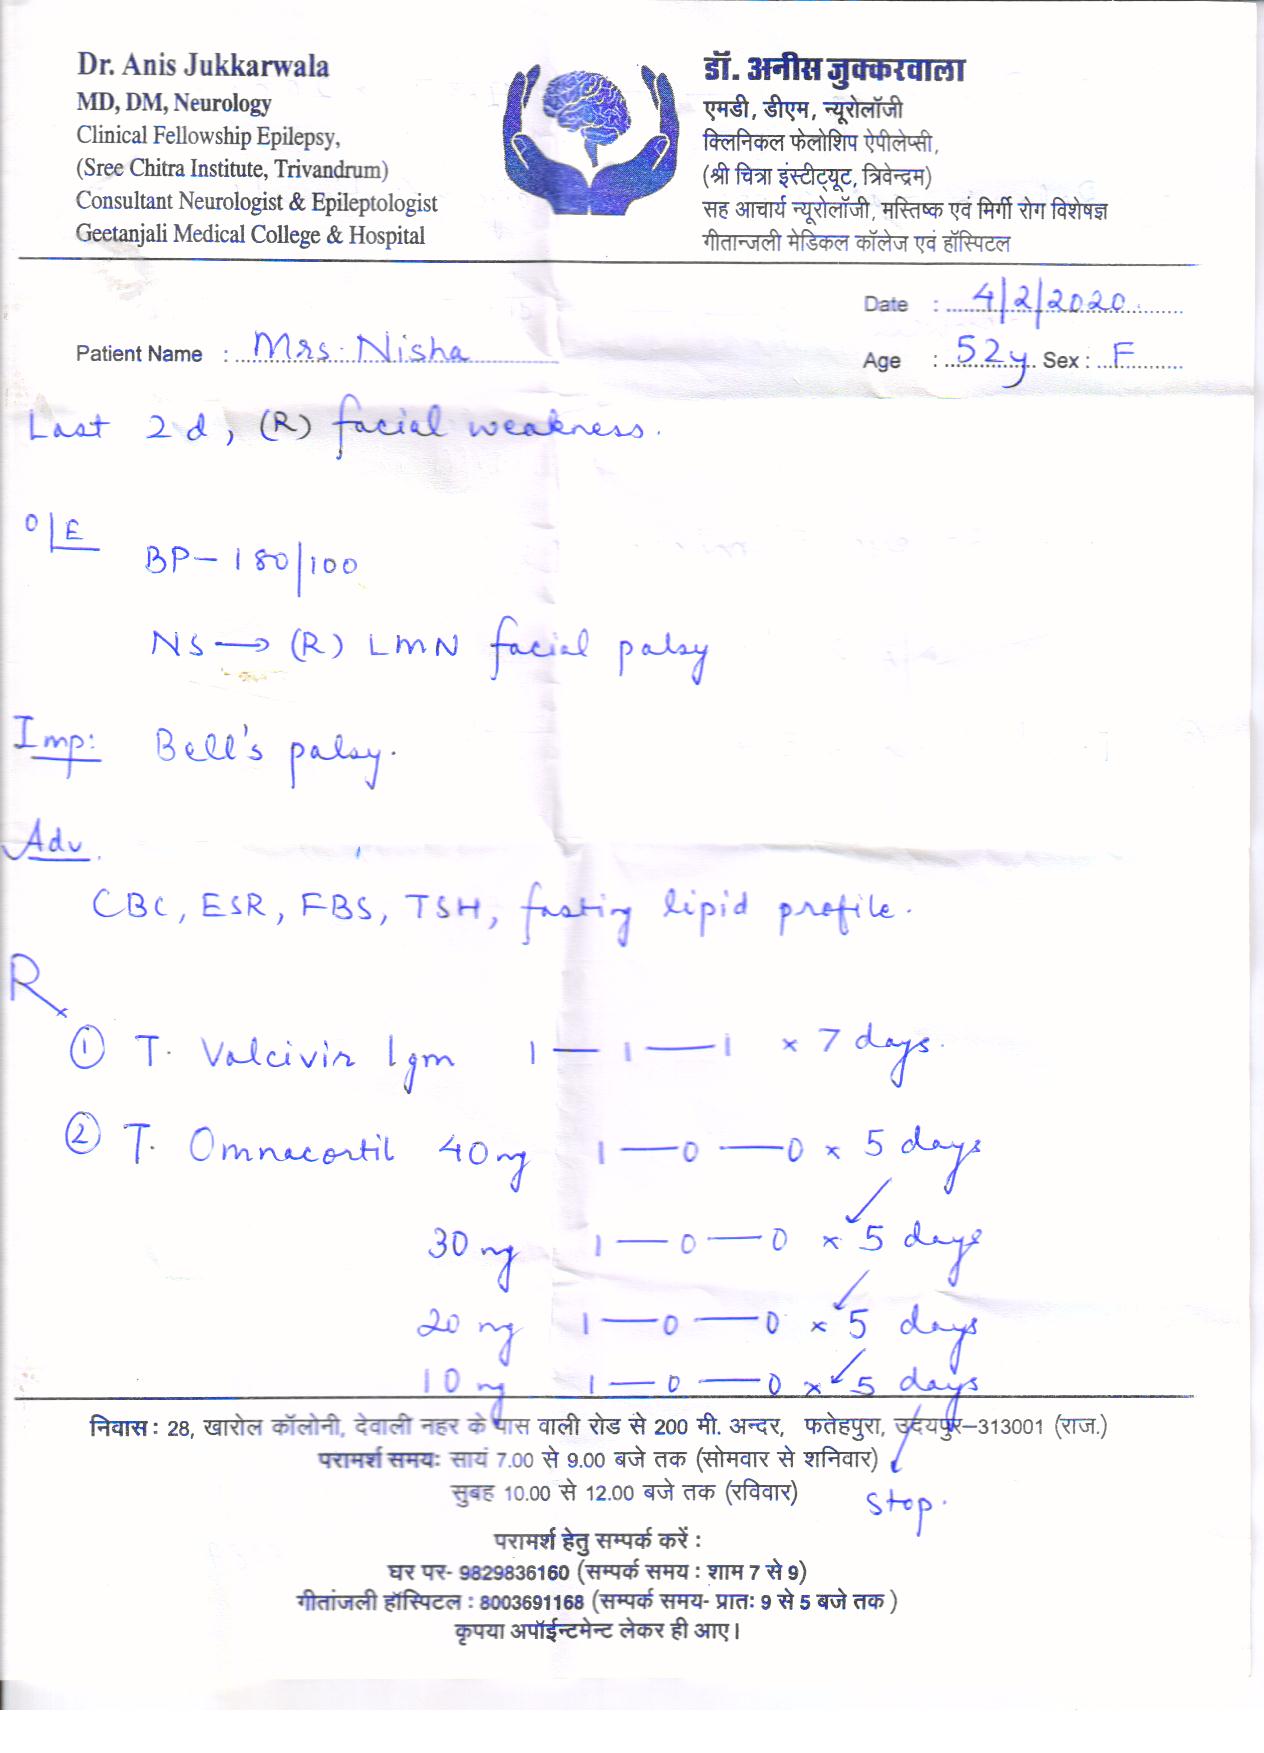 Dr. Anis Jukkarwala
MD, DM, Neurology
Clinical Fellowship Epilepsy,
(Sree Chitra Institute, Trivandrum)
Consultant Neurologist & Epileptologist
Geetanjali Medical College & Hospital
डॉ. अनीस जुक्करवाला
एमडी, डीएम, न्यूरोलॉजी
क्लिनिकल फेलोशिप ऐपीलेप्सी,
(श्री चित्रा इंस्टीट्यूट, त्रिवेन्द्रम)
सह आचार्य न्यूरोलॉजी, मस्तिष्क एवं मिर्गी रोग विशेषज्ञ
गीतान्जली मेडिकल कॉलेज एवं हॉस्पिटल
Date : 4/2/2020
Patient Name : Mrs. Nisha
Age : 52y Sex : F
Last 2 d, (R) facial weakness.
O/E
BP - 180/100
NS → (R) LMN facial palsy
Imp: Bell's palsy.
Adv.
CBC, ESR, FBS, TSH, fasting lipid profile.
Rx
① T. Valcivir 1gm 1 — 1 — 1 x 7 days.
② T. Omnacortil 40 mg 1 — 0 — 0 x 5 days
30 mg 1 — 0 — 0 x 5 days
20 mg 1 — 0 — 0 x 5 days
10 mg 1 — 0 — 0 x 5 days
निवास : 28, खारोल कॉलोनी, देवाली नहर के पास वाली रोड से 200 मी. अन्दर, फतेहपुरा, उदयपुर–313001 (राज.)
परामर्श समयः सायं 7.00 से 9.00 बजे तक (सोमवार से शनिवार)
सुबह 10.00 से 12.00 बजे तक (रविवार)
Stop.
परामर्श हेतु सम्पर्क करें :
घर पर- 9829836160 (सम्पर्क समय : शाम 7 से 9)
गीतांजली हॉस्पिटल : 8003691168 (सम्पर्क समय- प्रातः 9 से 5 बजे तक )
कृपया अपॉईन्टमेन्ट लेकर ही आए।